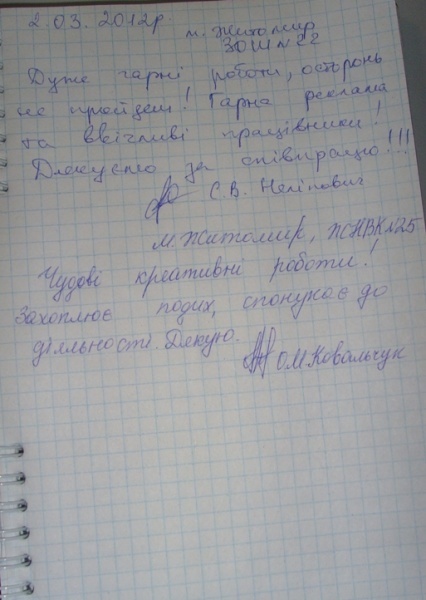 2.03.2012р.
м. Житомир
ЗОШ №22
Дуже гарні роботи, осторонь
не пройдеш! Гарна реклама
та ввічливі працівники!
Дякуємо за співпрацю!!!
С.В. Неліпович
м. Житомир, ЖСНВК №25
Чудові креативні роботи!
Захоплює подих, спонукає до
діяльності. Дякую.
О.М. Ковальчук